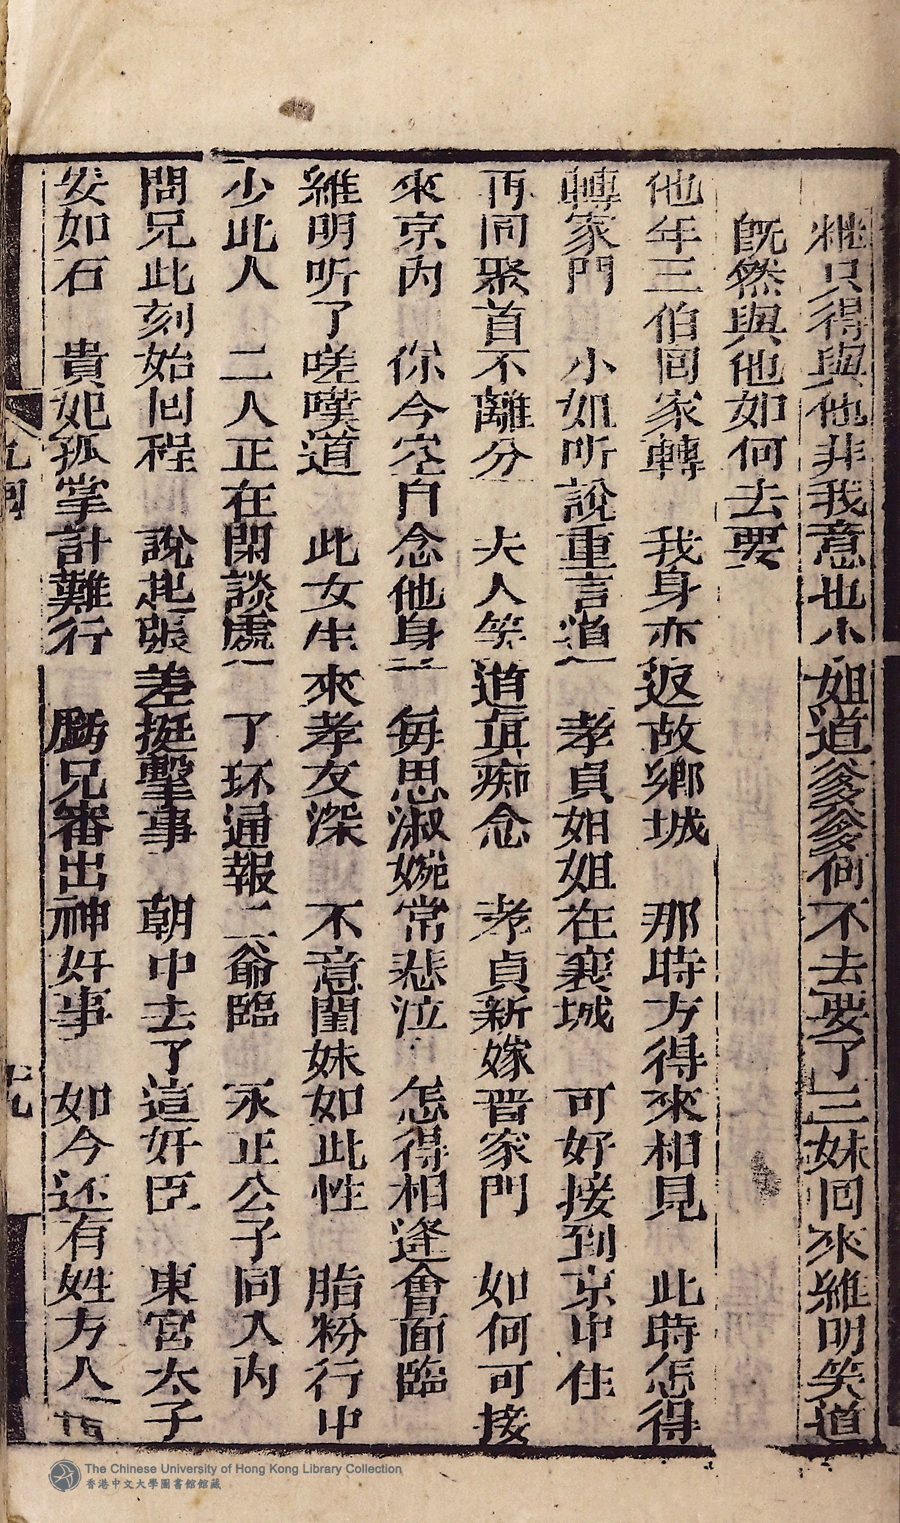 粧只得與他非我意也小姐道爹爹何不去要了三妹回來維明笑道
旣然與他如何去要
他年三伯囘家轉　我身亦返故鄉城　那時方得來相見　此時怎得
轉家門　小如听說重言道　孝貞姐姐在襄城　可好接到京中住
再同聚首不離分　夫人笑道眞痴念　孝貞新嫁晋家門　如何可接
來京內　你今空自念他身　每思淑婉常悲泣　怎得相逢會面臨
維明听了嗟嘆道　此女生來孝友深　不意閨妹如此性　脂粉行中
少此人　二人正在閑談處　了环通報二爺臨　永正公子同入內
問兄此刻始回程　說起張差挺擊事　朝中去了這奸臣　東宮太子
安如石　貴妃孤掌計難行　虧兄審出神奸事　如今还有姓方人
九回
十九
The Chinese University of Hong Kong Library Collection
香港中文大學圖書館館藏